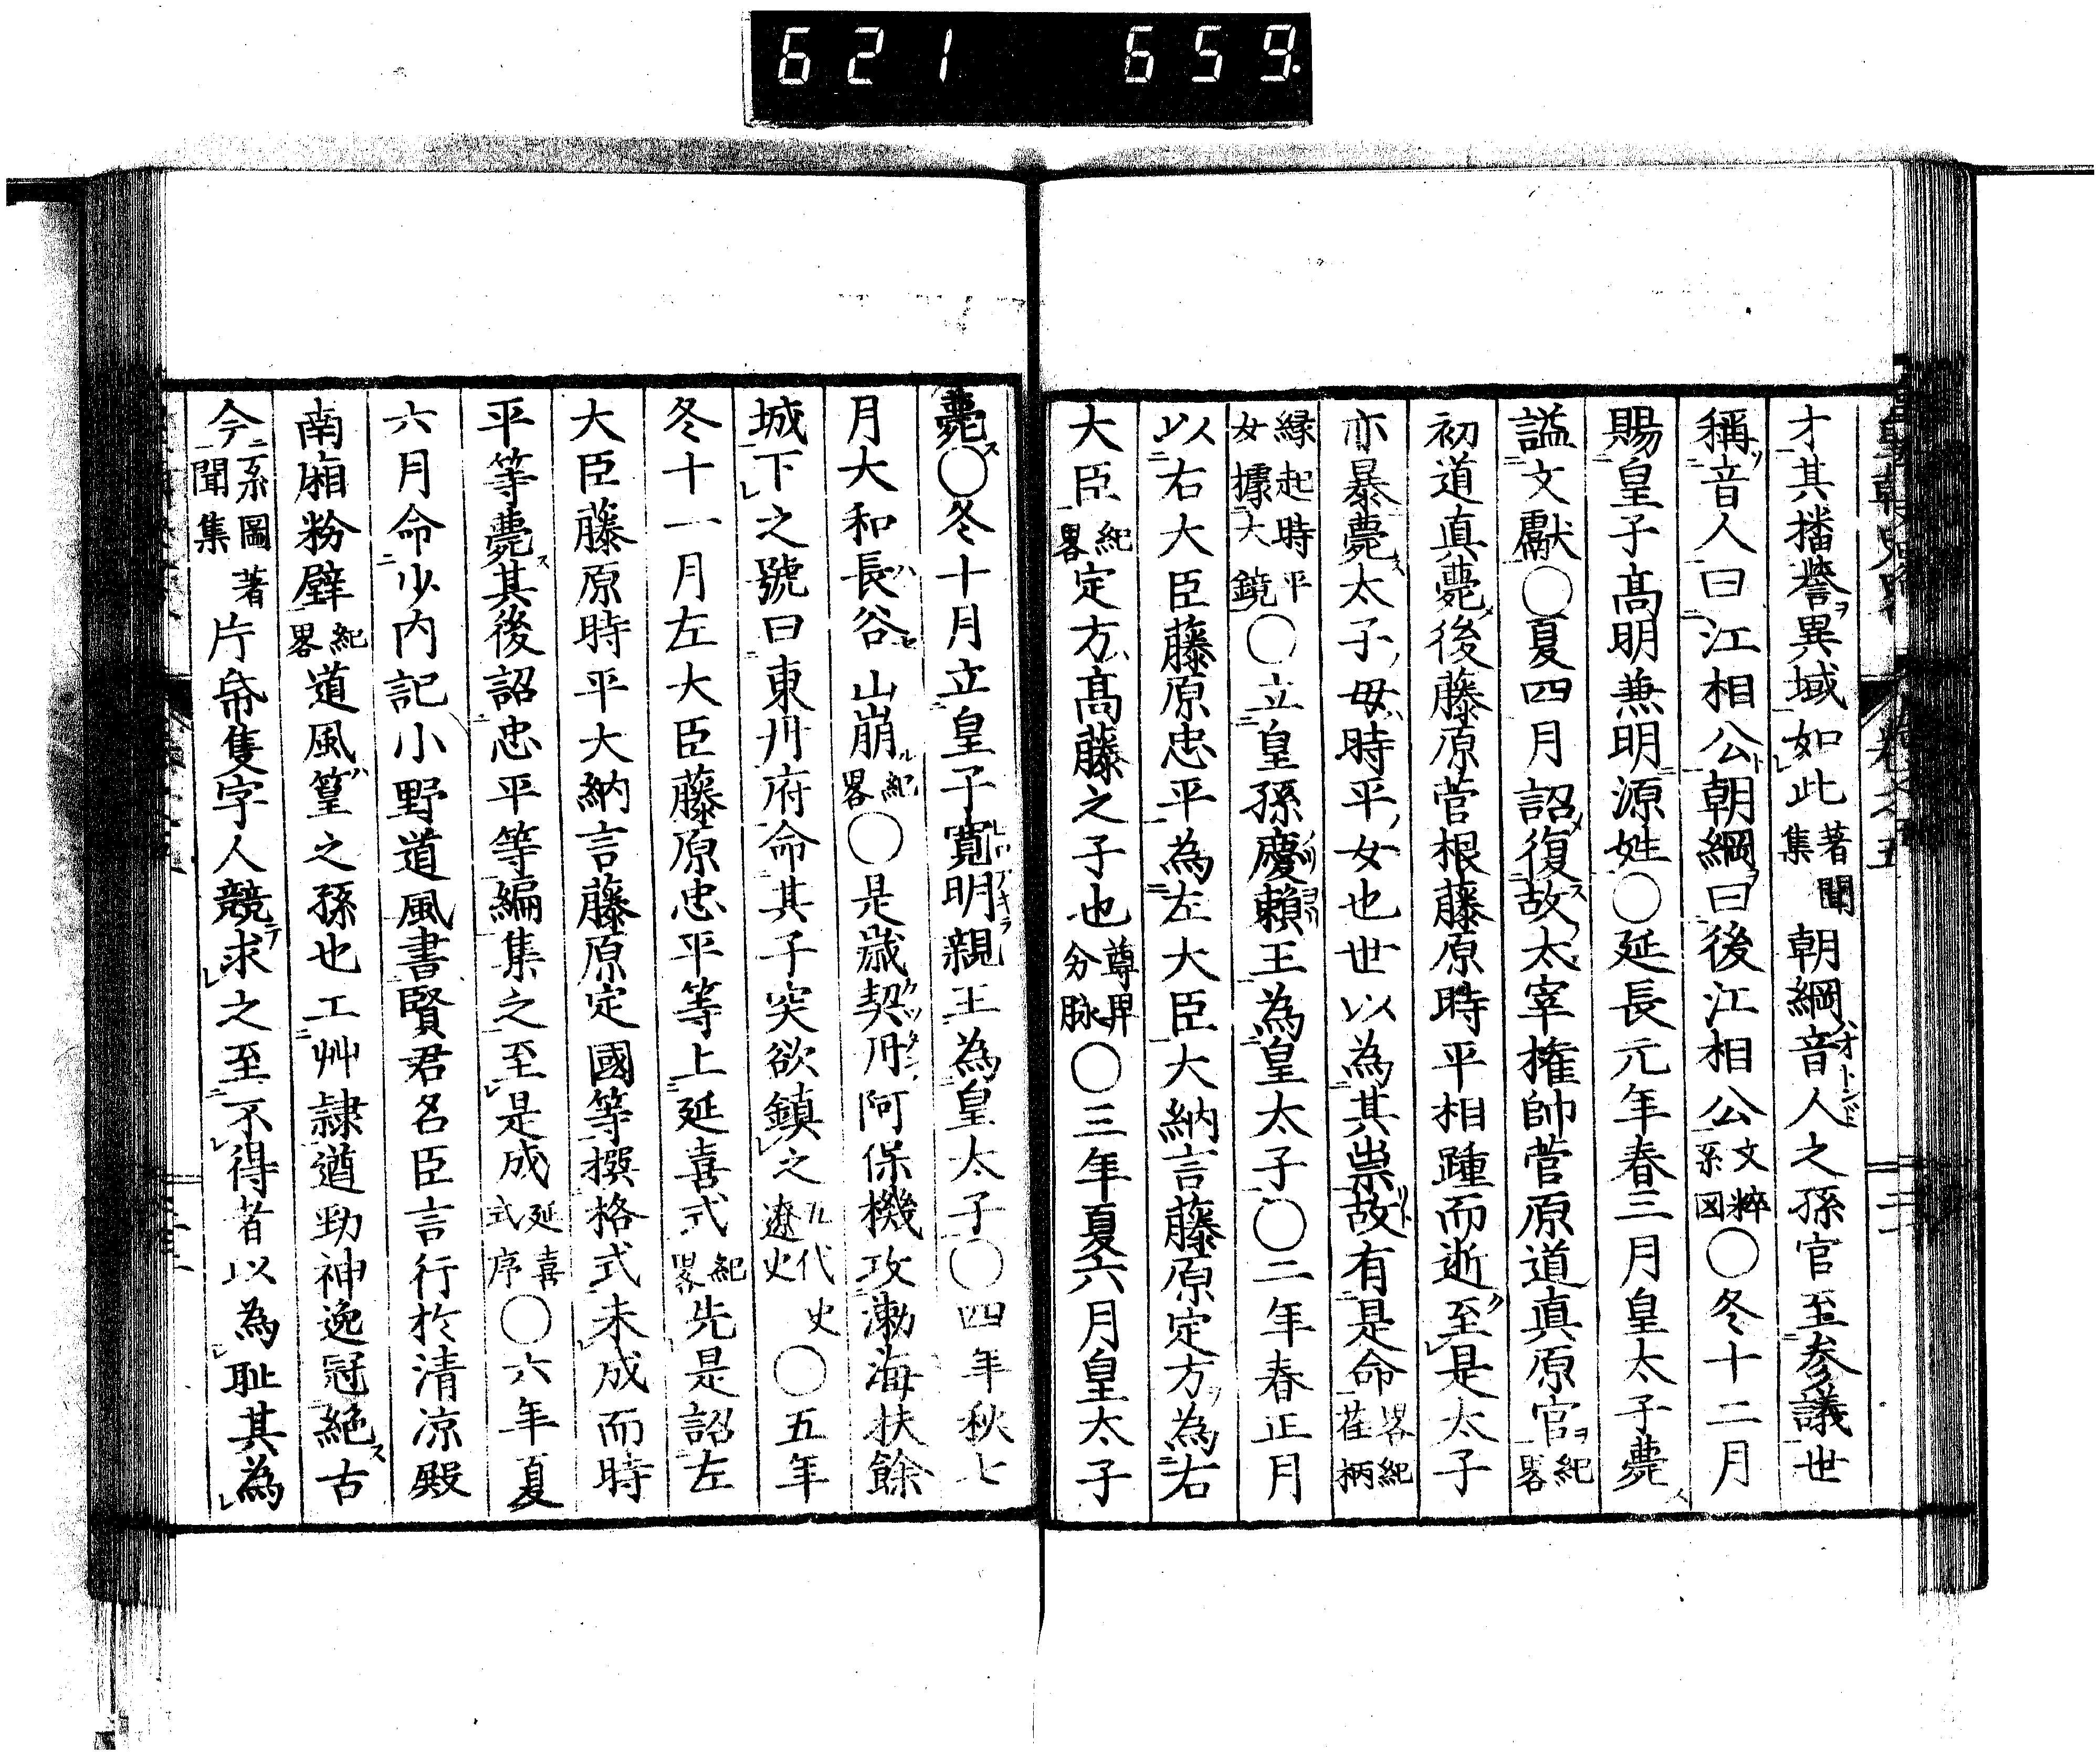 621 659.
才其播誉異域如此著聞集朝綱音人之孫官至参議世
稱音人曰江相公朝綱曰後江相公文粹系図○冬十二月
賜皇子高明兼明源姓○延長元年春三月皇太子薨
謚文獻○夏四月詔復故太宰権帥菅原道真原官紀畧
初道真薨後藤原菅根藤原時平相踵而逝至是太子
亦暴薨太子母時平女也世以為其祟故有是命畧紀荏柄
縁起時平女據大鏡○立皇孫慶頼王為皇太子○二年春正月
以右大臣藤原忠平為左大臣大納言藤原定方為右
大臣紀畧定方高藤之子也尊卑分脉○三年夏六月皇太子
薨○冬十月立皇子寛明親王為皇太子○四年秋七
月大和長谷山崩紀畧○是歳契丹阿保機攻渤海扶餘
城下之號曰東丹府命其子突欲鎮之代史遼史○五年
冬十一月左大臣藤原忠平等上延喜式紀畧先是詔左
大臣藤原時平大納言藤原定國等撰格式未成而時
平等薨其後詔忠平等編集之至是成延喜式序○六年夏
六月命少内記小野道風書賢君名臣言行於清凉殿
南廂粉壁紀畧道風篁之孫也工艸隷遒勁神逸冠絶古
今系圖著聞集片帋隻字人競求之至不得者以為耻其為